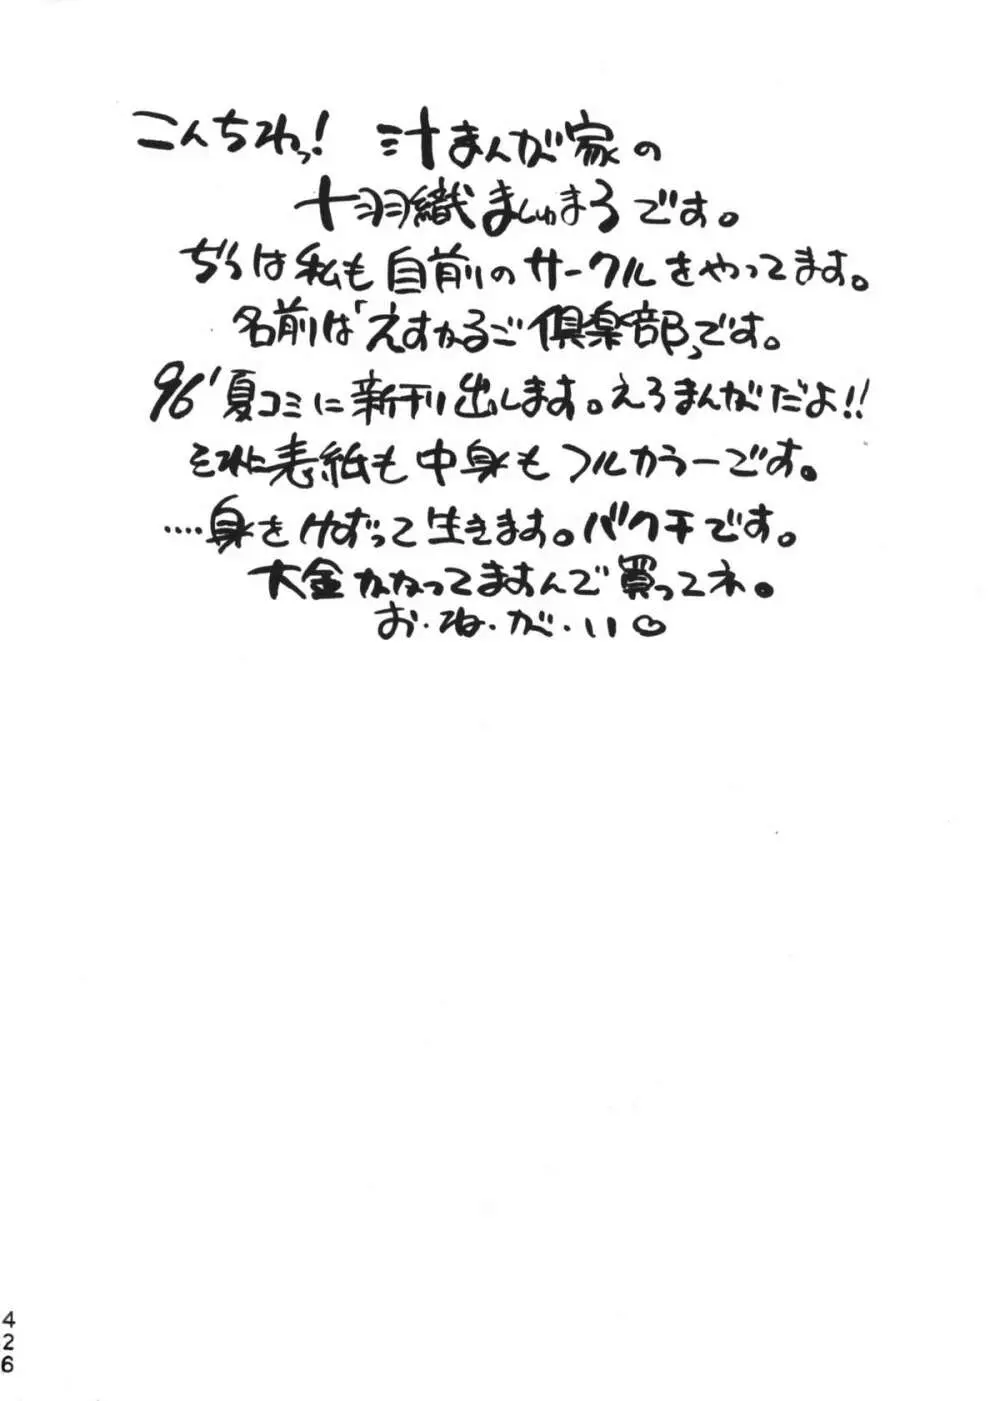 こんちわっ! 汁まんが家の
十羽織ましゅまろです。
ぢつは私も自前のサークルをやってます。
名前は「えすかるご倶楽部」です。
96'夏コミに新刊出します。えろまんがだよ!!
それに表紙も中身もフルカラーです。
‥‥身をけずって生きます。バクチです。
大金かかってますんで買ってネ。
お・ね・が・い♡
426